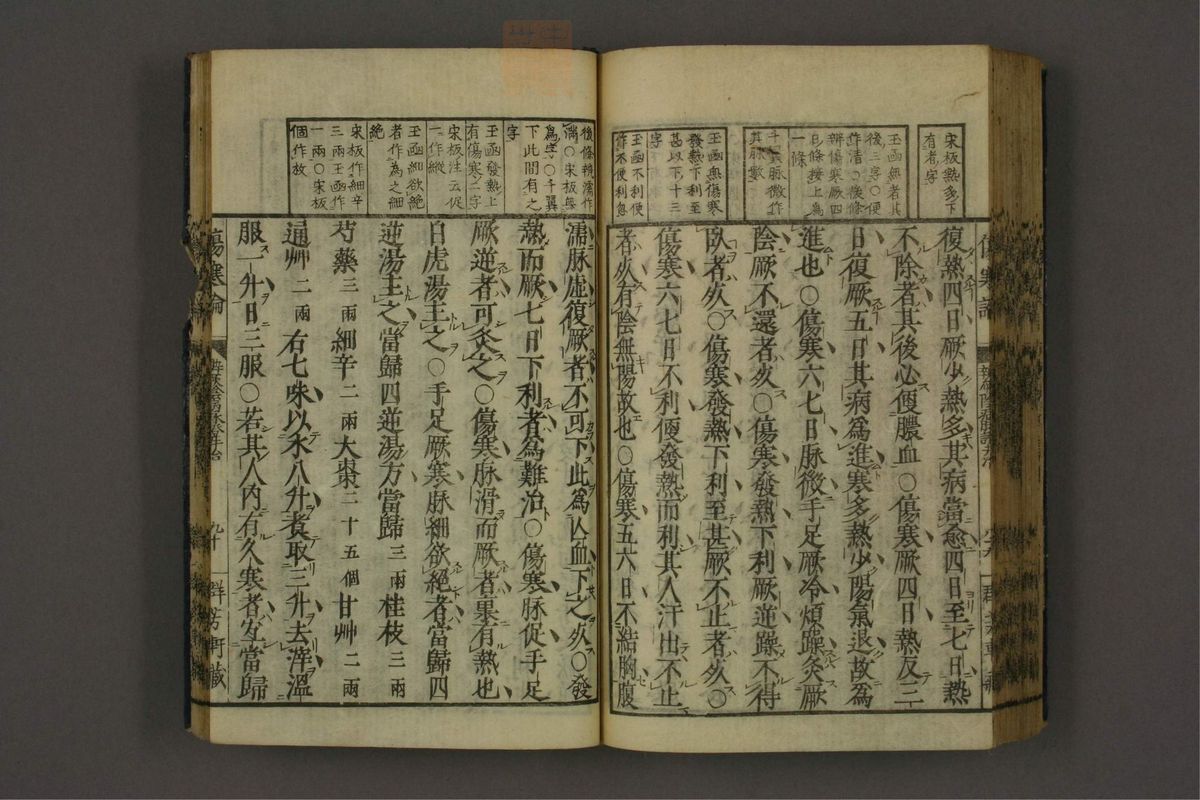 宋板熱多下
有者字
玉函無者其
後三字〇便
作清〇後條
辨傷寒厥四
日條接上為
一條
千翼脉微作
其脉數
玉函無傷寒
發熱下利至
甚以下十三
字
玉函不利便
作不便利忽
復熱四日厥少熱多其病當愈四日至七日熱
不除者其後必便膿血〇傷寒厥四日熱反三
日復厥五日其病爲進寒多熱少陽氣退故爲
進也〇傷寒六七日脉微手足厥冷煩躁灸厥
陰厥不還者死〇傷寒發熱下利厥逆躁不得
臥者死〇傷寒發熱下利至甚厥不止者死〇
傷寒六七日不利便發熱而利其人汗出不止
者死有陰無陽故也〇傷寒五六日不結胸腹
後條辨濡作
濇〇宋板無
爲字〇千翼
下此間有之
字
玉函發熱上
有傷寒二字
宋板注云促
一作縱
玉函細欲絕
者作為之細
絕
宋板作細辛
三兩玉函作
一兩〇宋板
個作故
濡脉虛復厥者不可下此爲亾血下之死〇發
熱而厥七日下利者爲難治〇傷寒脉促手足
厥逆者可灸之〇傷寒脉滑而厥者裏有熱也
白虎湯主之〇手足厥寒脉細欲絕者當歸四
逆湯主之當歸四逆湯方當歸三兩桂枝三兩
芍藥三兩細辛二兩大棗二十五個甘艸二兩
通艸二兩右七味以水八升煑取三升去滓溫
服一升日三服〇若其人內有久寒者宜當歸
傷寒論
九十
群芳軒藏